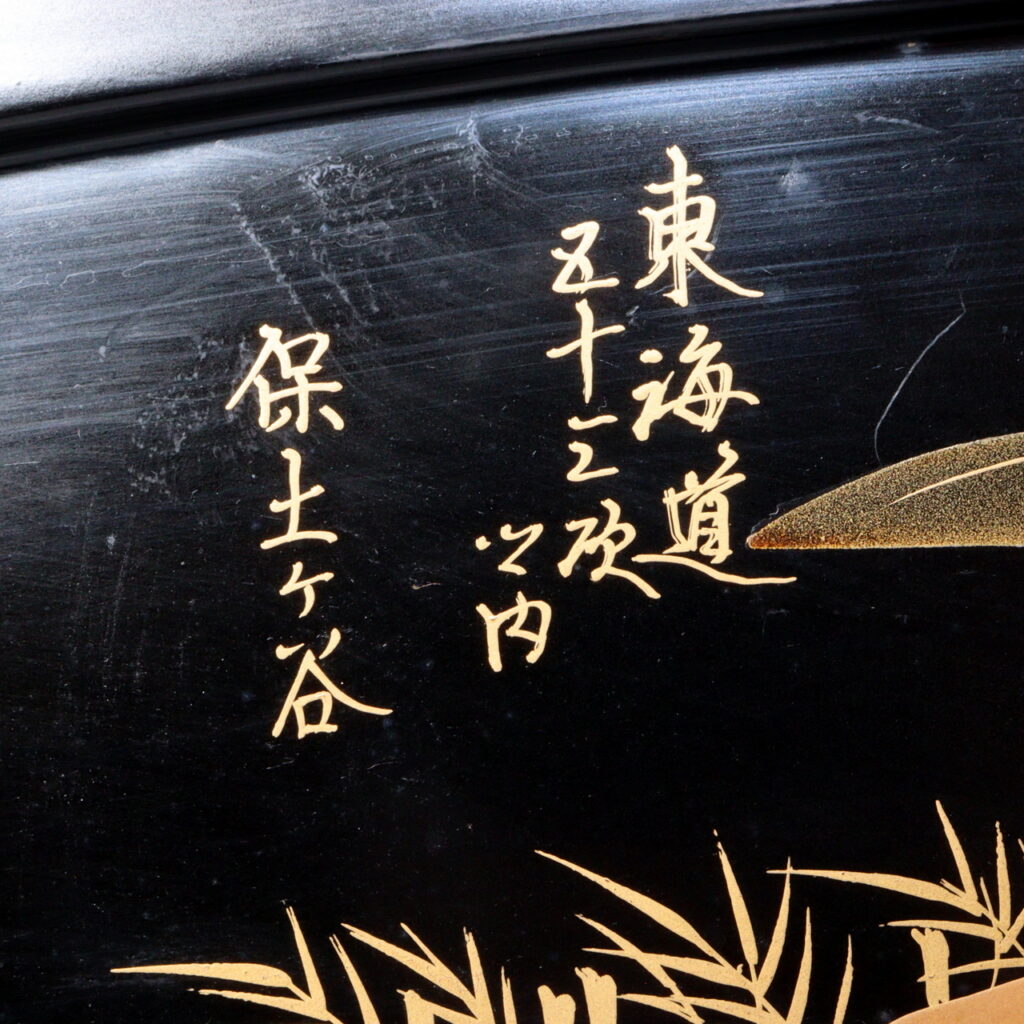 東海道
五十三次
之内
保土ヶ谷